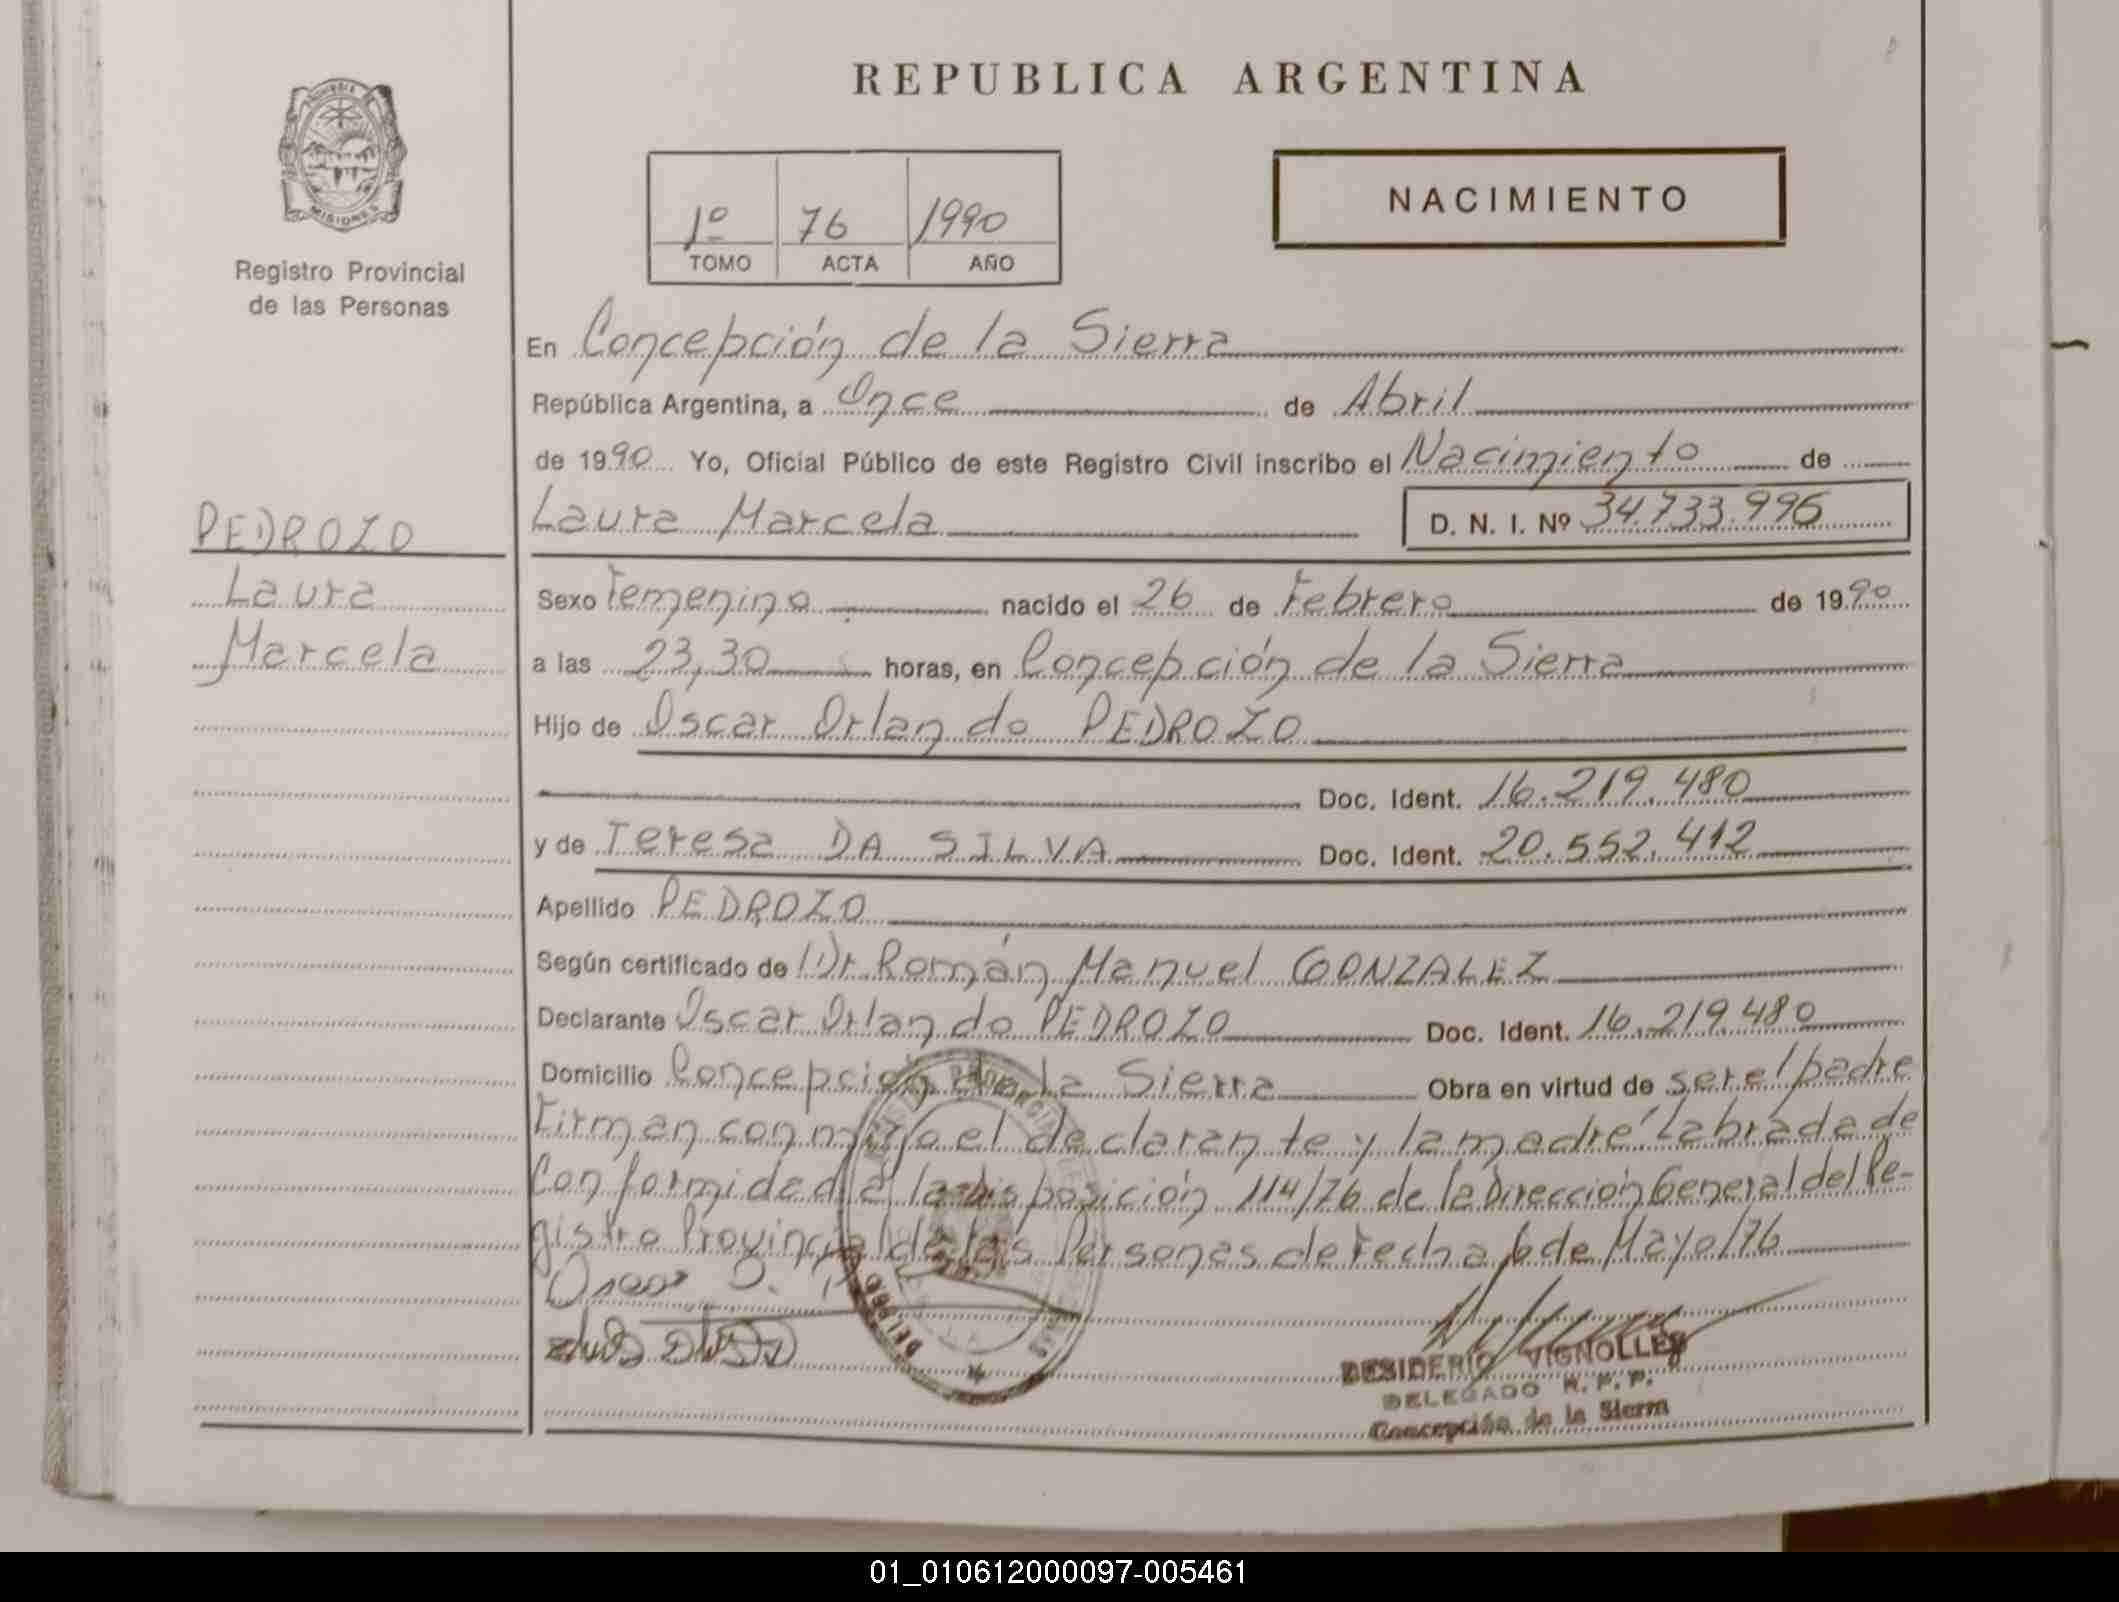 REPUBLICA ARGENTINA
PROVINCIA DE
MISIONES
Registro Provincial
de las Personas
1º 76 1990
TOMO ACTA AÑO
NACIMIENTO
En Concepción de la Sierra
República Argentina, a Once de Abril
de 1990 Yo, Oficial Público de este Registro Civil inscribo el Nacimiento de
Laura Marcela D. N. I. Nº 34.733.996
PEDROZO
Laura
Marcela
Sexo Femenino nacido el 26 de Febrero de 1990
a las 23,30 horas, en Concepción de la Sierra
Hijo de Oscar Orlando PEDROZO
Doc. Ident. 16.219.480
y de Teresa DA SILVA Doc. Ident. 20.552.412
Apellido PEDROZO
Según certificado de Dr Román Manuel GONZALEZ
Declarante Oscar Orlando PEDROZO Doc. Ident. 16.219.480
Domicilio Concepción de la Sierra Obra en virtud de ser el padre
Firman conmigo el declarante y la madre "Labrada de
Conformidad a la disposición 114/76 de la Dirección General del Re-
gistro Provincial de las Personas de fecha 6 de Mayo/76
Oscar O. P
DESIDERIO VIGNOLLES
DELEGADO R. P. P.
Concepción de la Sierra
01_010612000097-005461